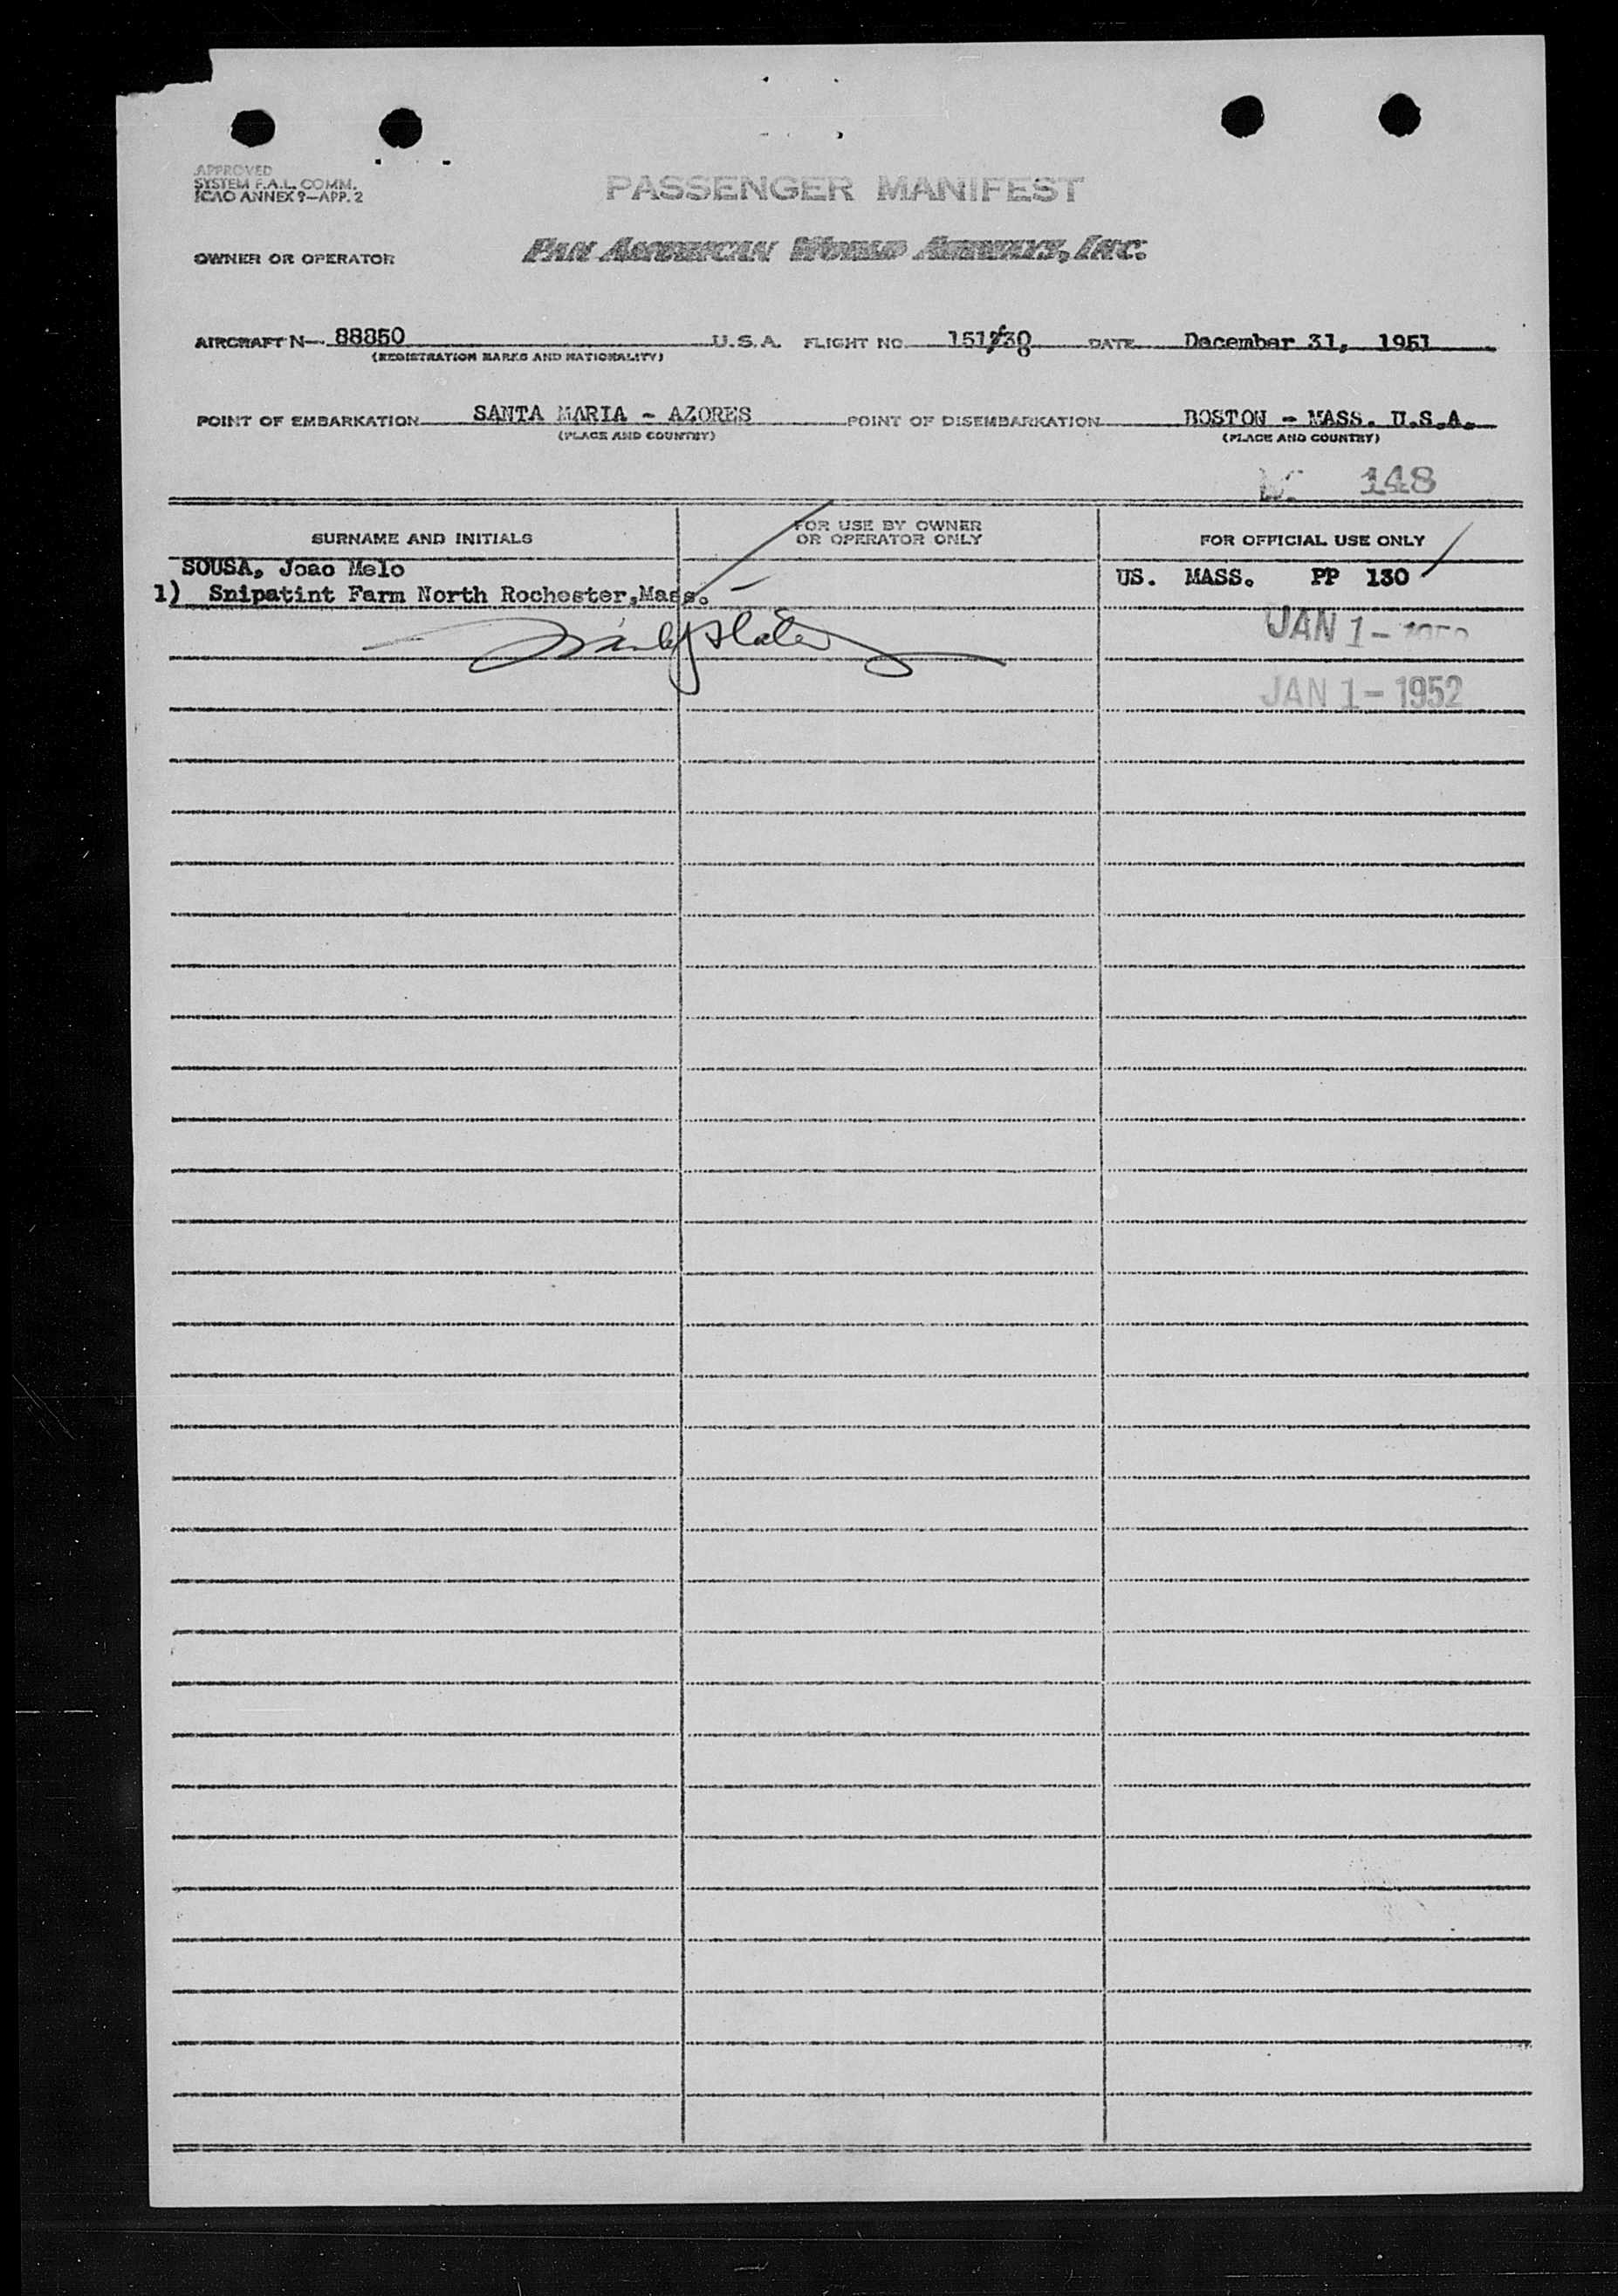 APPROVED
SYSTEM F.A.L. COMM.
ICAO ANNEX 9—APP. 2
PASSENGER MANIFEST
OWNER OR OPERATOR PAN AMERICAN WORLD AIRWAYS, INC.
AIRCRAFT N— 88850 U.S.A. FLIGHT NO. DATE December 31, 1951
(REGISTRATION MARKS AND NATIONALITY)
POINT OF EMBARKATION SANTA MARIA - AZORES POINT OF DISEMBARKATION BOSTON - MASS. U.S.A.
(PLACE AND COUNTRY) (PLACE AND COUNTRY)
148
SURNAME AND INITIALS FOR USE BY OWNER OR OPERATOR ONLY FOR OFFICIAL USE ONLY
SOUSA, Joao Melo US. MASS. PP 130
1) Snipatint Farm North Rochester,Mass.
JAN 1-
JAN 1-1952